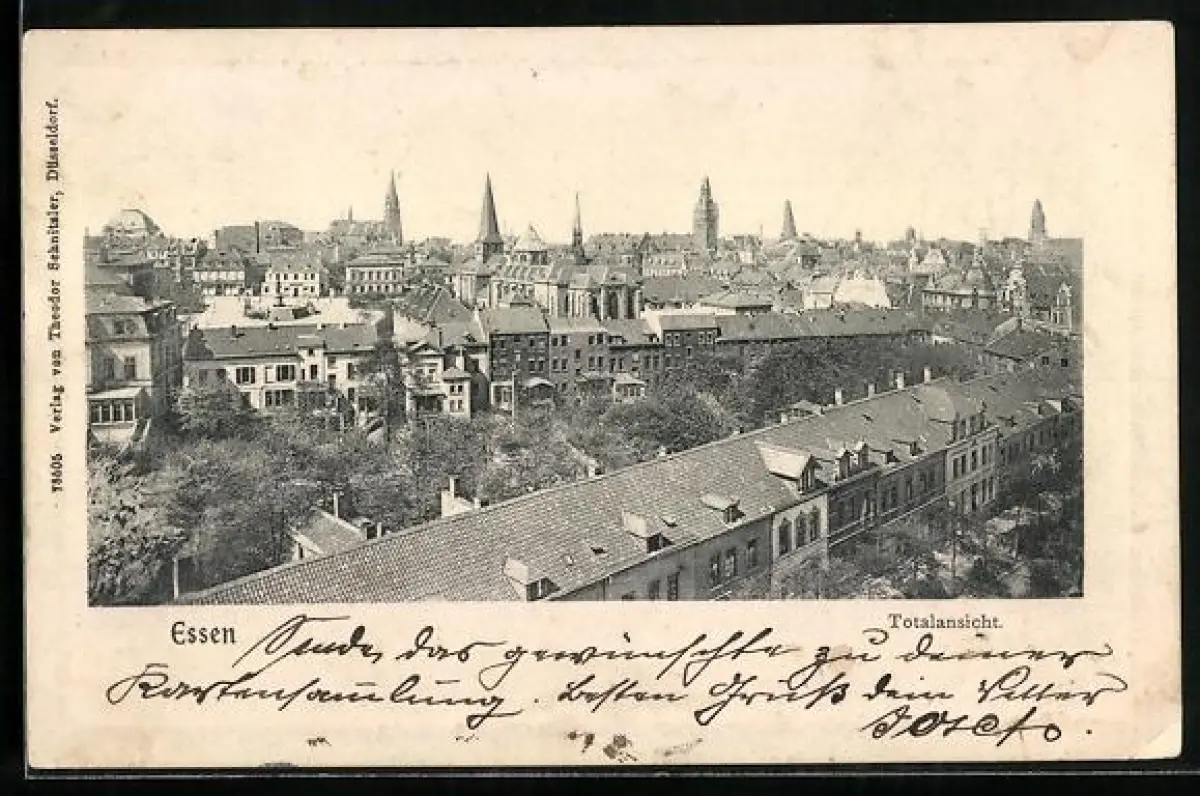 13605 Verlag von Theodor Schnitzler, Düsseldorf.
Essen
Totalansicht.
Sende das gewünschte zu deiner
Kartensammlung. Besten Gruß dein Vetter
Josef.